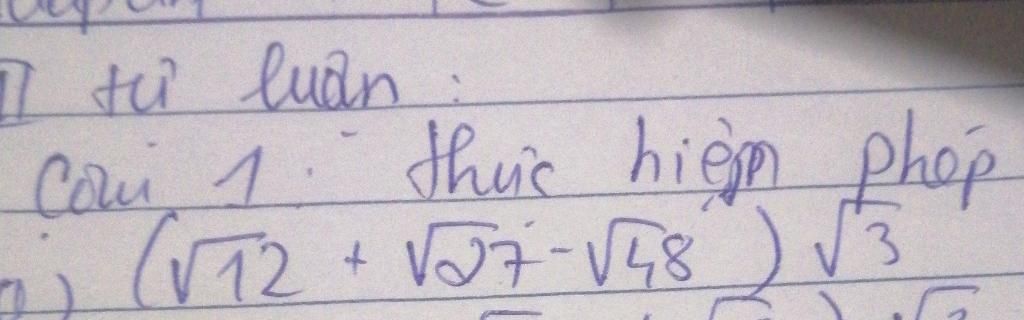 II tự luận :
Câu 1. thực hiện phép
a) (√12 + √27 - √48 ) √3